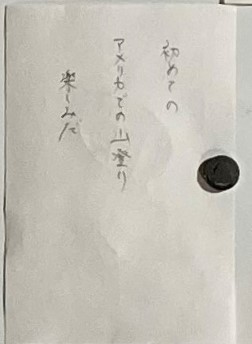 初めての
アメリカでの山登り
楽しみだ